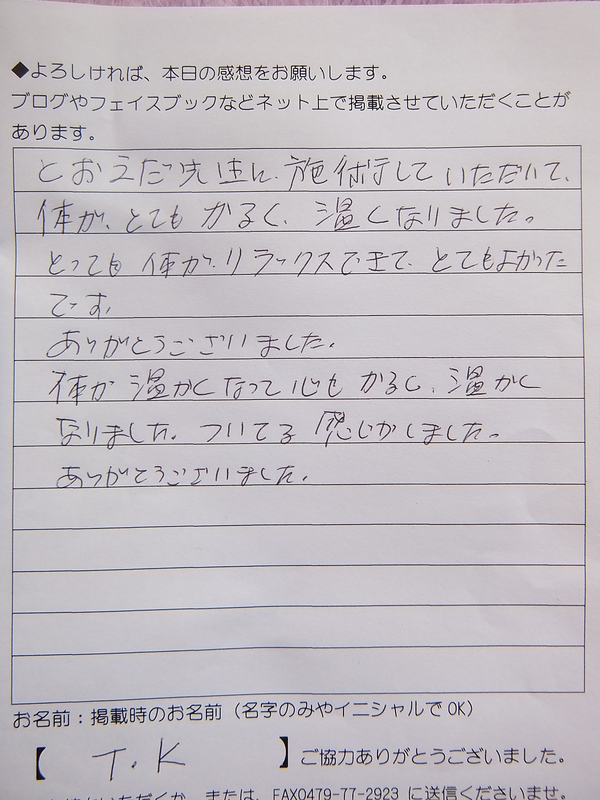 ◆よろしければ、本日の感想をお願いします。
ブログやフェイスブックなどネット上で掲載させていただくことが
あります。
とおえだ先生に施術していただいて、
体が、とても かるく、温くなりました。
とっても 体が、リラックスできて、とてもよかった
です。
ありがとうございました。
体が 温かくなって 心も かるく、温かく
なりました。ついてる 感じがしました。
ありがとうございました。
お名前：掲載時のお名前（名字のみやイニシャルでOK）
【 T.K 】ご協力ありがとうございました。
または、FAX0479-77-2923 に送信くださいませ。